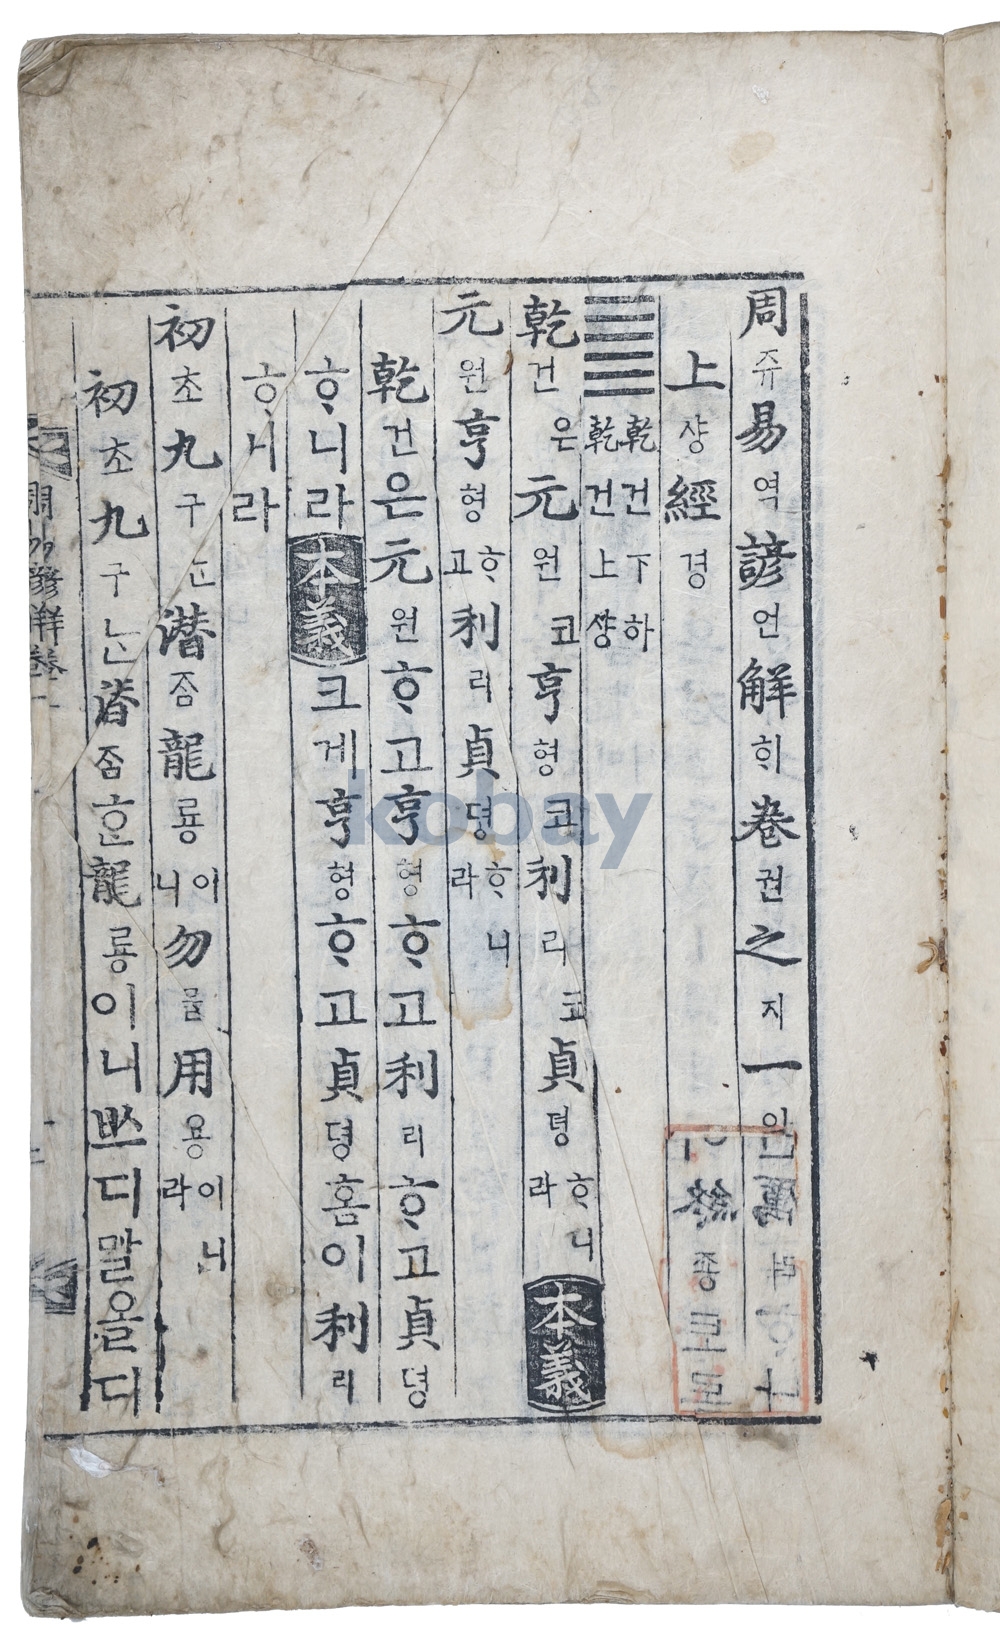 周쥬易역諺언解ᄒᆡ卷권之지一일
上샹經경
䷀乾건下하
乾건上샹
乾건은元원코亨형코利리코貞뎡ᄒᆞ니라本義
元원亨형ᄒᆞ고利리貞뎡ᄒᆞ니라
乾건은元원ᄒᆞ고亨형ᄒᆞ고利리ᄒᆞ고貞뎡
ᄒᆞ니라本義크게亨형ᄒᆞ고貞뎡홈이利리
ᄒᆞ니라
初초九구ᄂᆞᆫ潛ᄌᆞᆷ龍룡이니勿믈用용이니라
初초九구ᄂᆞᆫ潛ᄌᆞᆷᄒᆞᆫ龍룡이니ᄡᅳ디말올디
周易諺解卷一
kobay